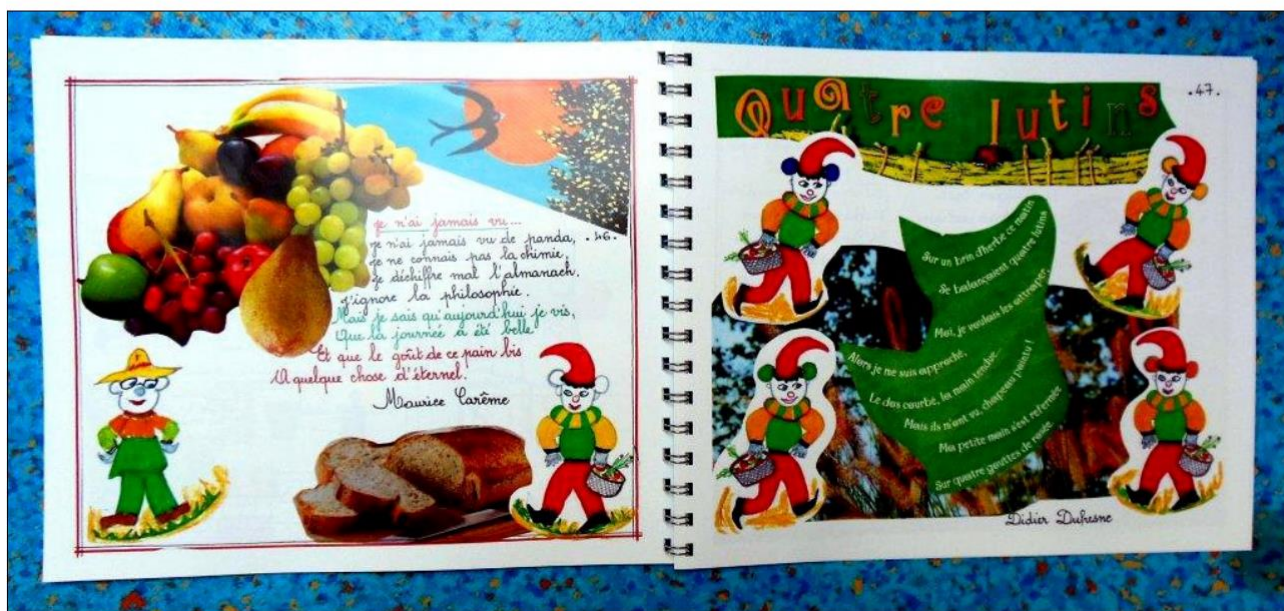 je n'ai jamais vu...
je n'ai jamais vu de panda,
.46.
je ne connais pas la chimie,
je déchiffre mal l'almanach,
j'ignore la philosophie.
Mais je sais qu'aujourd'hui je vis,
Que la journée a été belle
Et que le goût de ce pain bis
A quelque chose d'éternel.
Maurice Carême
Quatre lutins
.47.
Sur un brin d'herbe ce matin
Se balançaient quatre lutins
Moi, je voulais les attraper,
Alors je me suis approché,
Le dos courbé, la main tendue...
Mais ils m'ont vu, chapeau pointu !
Ma petite main s'est refermée
Sur quatre gouttes de rosée.
Didier Dufresne